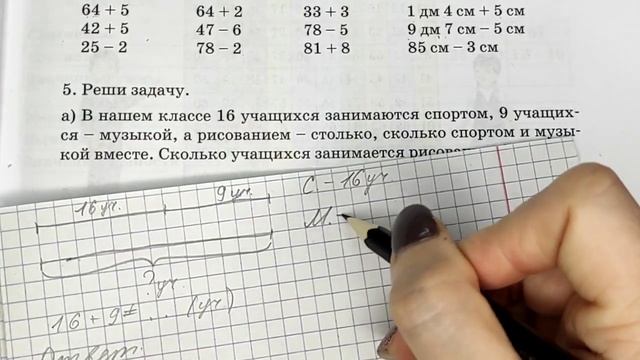 64 + 5 64 + 2 33 + 3 1 дм 4 см + 5 см
42 + 5 47 − 6 78 − 5 9 дм 7 см − 5 см
25 − 2 78 − 2 81 + 8 85 см − 3 см
5. Реши задачу.
а) В нашем классе 16 учащихся занимаются спортом, 9 учащих-
ся − музыкой, а рисованием − столько, сколько спортом и музы-
кой вместе. Сколько учащихся занимается
16 уч. 9 уч. С. − 16 уч
М. −
? уч.
16 + 9 = ... (уч)
Ответ: